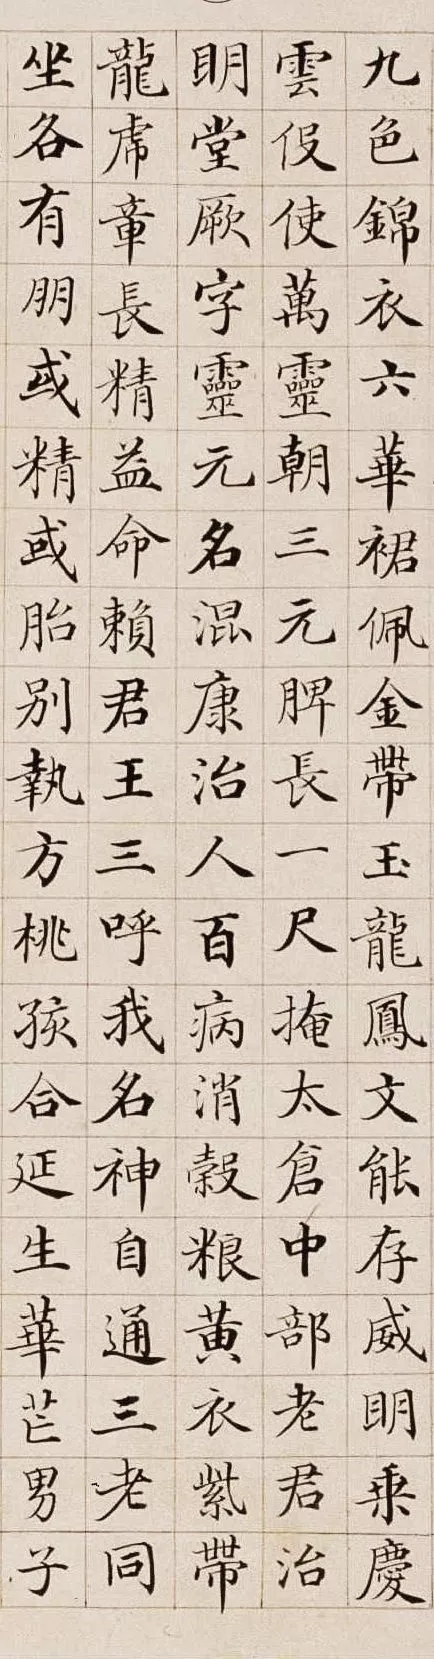 九色錦衣六華裙佩金帶玉龍鳳文能存威明乗慶
雲伇使萬靈朝三元脾長一尺掩太倉中部老君治
明堂厥字靈元名混康治人百病消榖粮黄衣紫帶
龍虎章長精益命賴君王三呼我名神自通三老同
坐各有朋或精或胎別執方桃孩合延生華芒男子